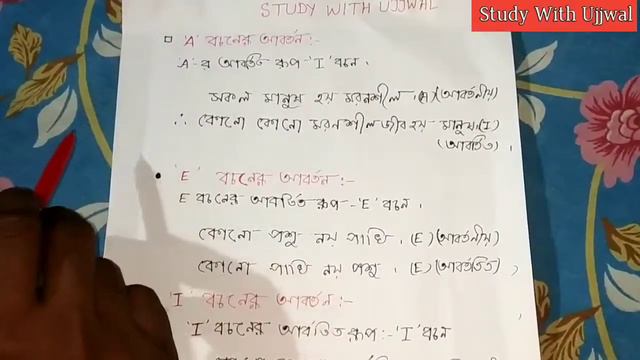 STUDY WITH UJJWAL
Study With Ujjwal
'A' বচনের আবর্তন :-
A-র আবর্তিত রূপ - 'I' বচন।
সকল মানুষ হয় মরনশীল (A) (আবর্তনীয়)
∴ কোনো কোনো মরনশীল জীব হয় মানুষ (I)
(আবর্তিত)।
'E' বচনের আবর্তন :-
E বচনের আবর্তিত রূপ - 'E' বচন।
কোনো পশু নয় পাখি। (E) (আবর্তনীয়)
কোনো পাখি নয় পশু। (E) (আবর্তিত)
'I' বচনের আবর্তন :-
'I' বচনের আবর্তিত রূপ :- 'I' বচন